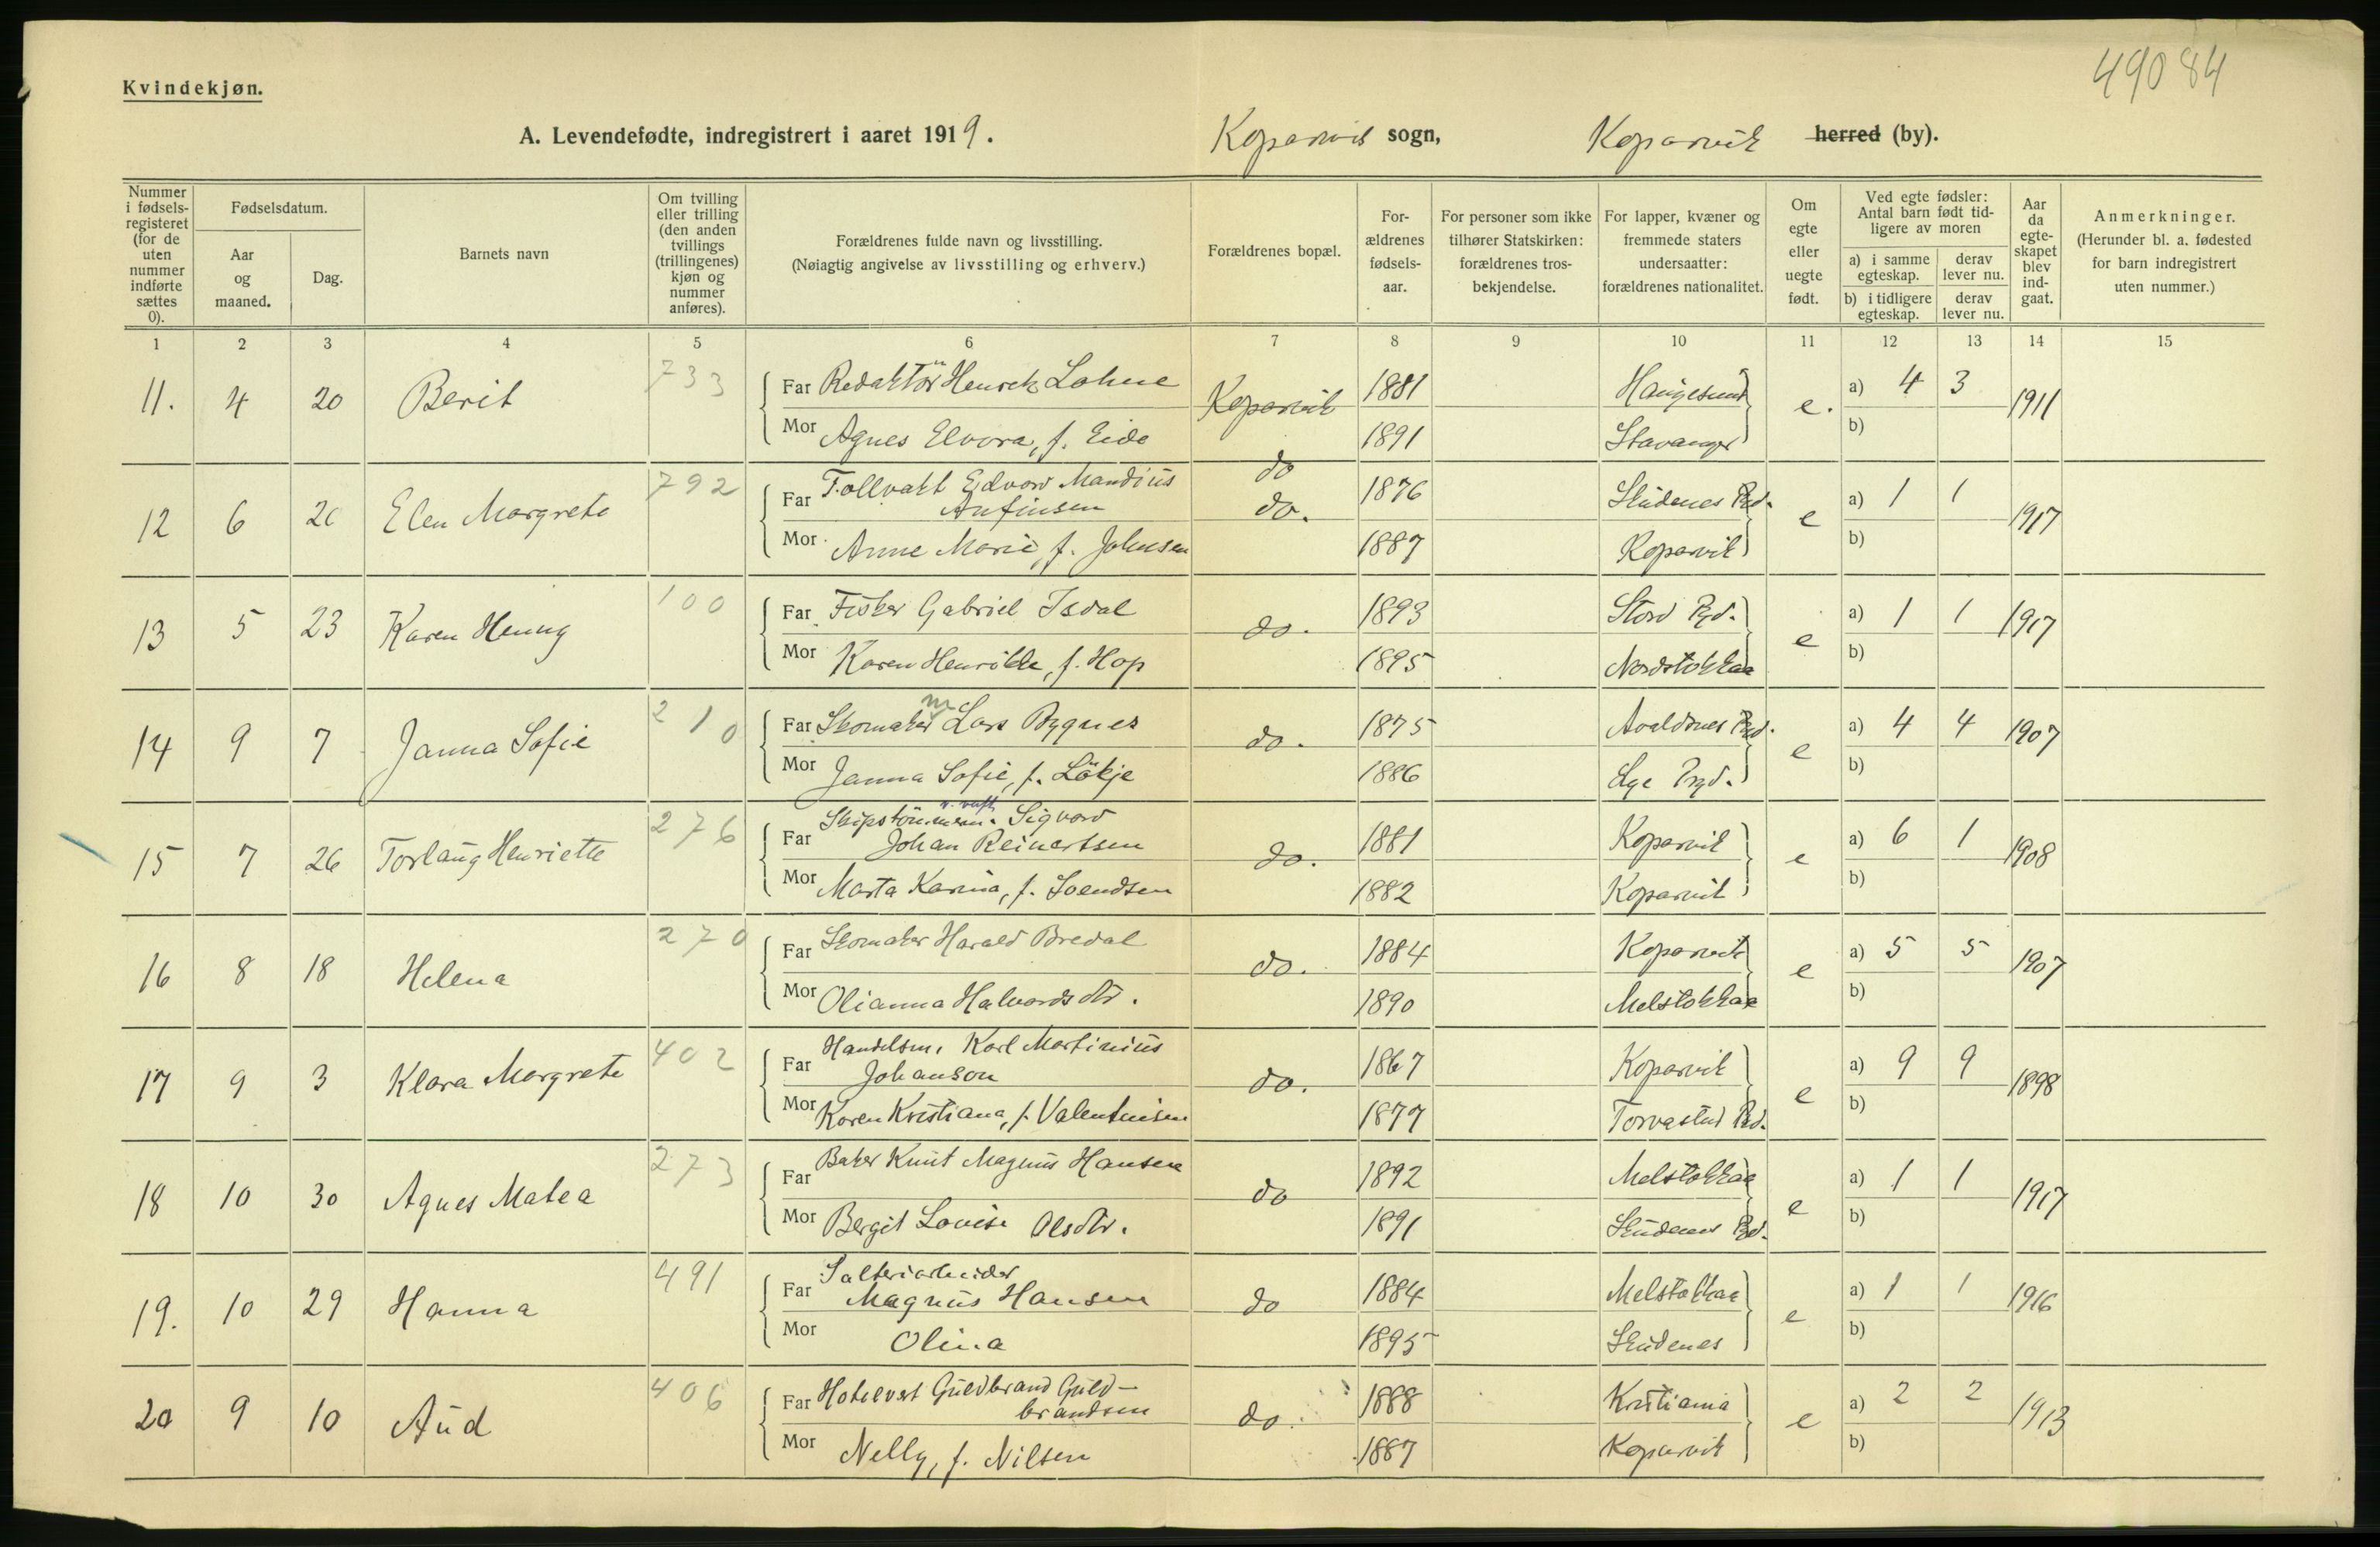 49084
Kvindekjøn.
A. Levendefødte, indregistrert i aaret 1919. Kopervik sogn, Kopervik herred (by).
Nummer i fødselsregisteret (for de uten nummer indførte sættes 0).
Fødselsdatum.
Aar og maaned.
Dag.
Barnets navn
Om tvilling eller trilling (den anden tvillings (trillingenes) kjøn og nummer anføres).
Forældrenes fulde navn og livsstilling.
(Nøiagtig angivelse av livsstilling og erhverv.)
Forældrenes bopæl.
Forældrenes fødselsaar.
For personer som ikke tilhører Statskirken: forældrenes trosbekjendelse.
For lapper, kvæner og fremmede staters undersaatter: forældrenes nationalitet.
Om egte eller uegte født.
Ved egte fødsler: Antal barn født tidligere av moren
a) i samme egteskap.
derav lever nu.
b) i tidligere egteskap.
derav lever nu.
Aar da egteskapet blev indgaat.
Anmerkninger.
(Herunder bl. a. fødested for barn indregistrert uten nummer.)
1 2 3 4 5 6 7 8 9 10 11 12 13 14 15
11. 4 20 Berit 733 Far Redaktör Henrek Lohne Kopervik 1881 Haugesund e. a) 4 3 1911
Mor Agnes Elvora, f. Eide 1891 Stavanger b)
do
12 6 20 Elen Margrete 792 Far Tollvakt Edvard Mandius
Anfinsen do. 1876 Skudenes Pgd. e a) 1 1 1917
Mor Anne Marie, f. Johnsen 1887 Kopervik b)
13 5 23 Karen Henny 100 Far Fisker Gabriel Isdal do. 1893 Stord Pgd. e a) 1 1 1917
Mor Karen Henrikke, f. Hop 1895 Nordstokkaa b)
14 9 7 Janna Sofie 210 Far Skomaker m Lars Bygnes do. 1875 Avaldsnes Pgd. e a) 4 4 1907
Mor Janna Sofie, f. Lökje 1886 Pgd. b)
15 7 26 Torlaug Henriette 276 Far Skipstömmerm. Sigvard
Johan Reinertsen do. 1881 Kopervik e a) 6 1 1908
Mor Marta Karina, f. Svendsen 1882 Kopervik b)
16 8 18 Helena 270 Far Skomaker Harald Bredal do. 1884 Kopervik e a) 5 5 1907
Mor Olianna Halvardsdtr. 1890 Melstokkaa b)
17 9 3 Klara Margrete 402 Far Handelsm. Karl Martinius
Johanson do. 1867 Kopervik e a) 9 9 1898
Mor Karen Kristiana, f. Valentinsen 1877 Torvastad Pgd. b)
18 10 30 Agnes Matea 273 Far Baker Knut Magnus Hansen do 1892 Melstokkaa e a) 1 1 1917
Mor Bergit Lovise Olsdtr. 1891 Skudenes Pgd. b)
19. 10 29 Hanna 491 Far Salteriarbeider
Magnus Hansen do 1884 Melstokkaa e a) 1 1 1916
Mor Olina 1895 Skudenes b)
20 9 10 Aud 406 Far Hotelvert Guldbrand Guld-
brandsen do. 1888 Kristiania e a) 2 2 1913
Mor Nelly, f. Nilsen 1887 Kopervik b)